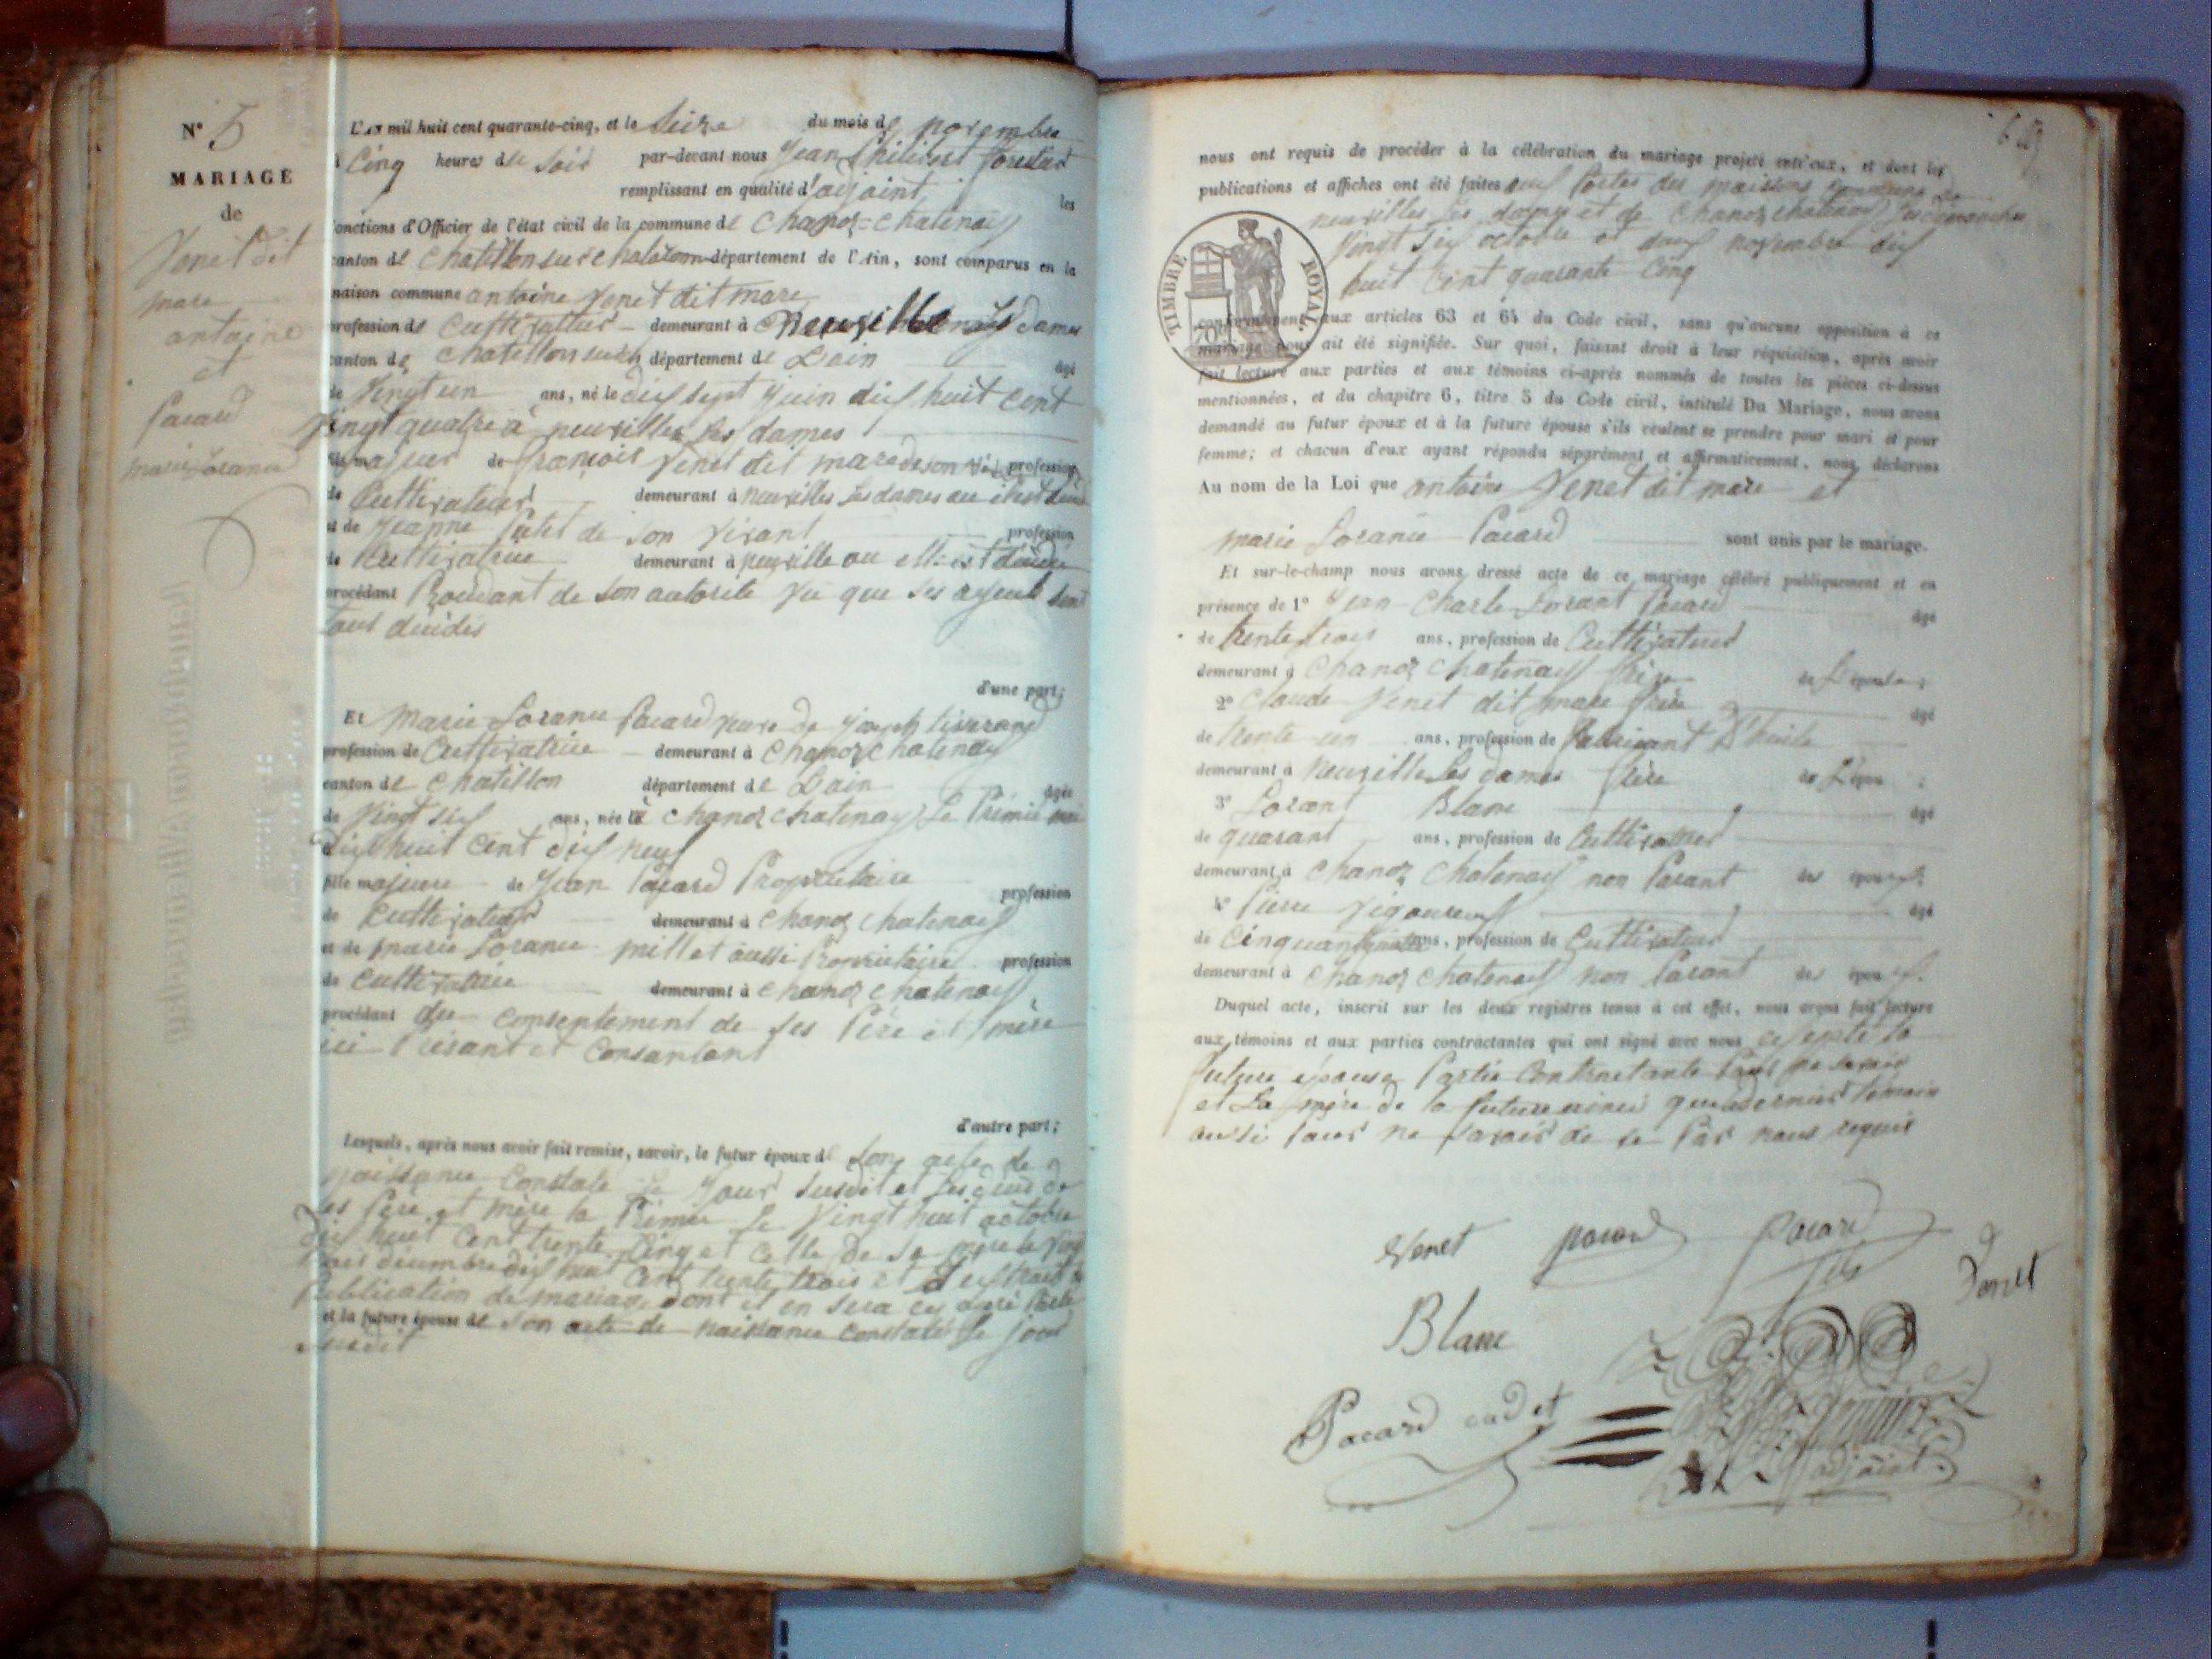 N° 5
MARIAGE
de
Venet dit
mare
antoine
et
Pacard
marie Loranee
L'An mil huit cent quarante-cinq, et le Seize du mois de novembre
à Cinq heures de Soir par-devant nous Jean Philibert
remplissant en qualité d'adjoint les
fonctions d'Officier de l'état civil de la commune de Chanoz-Chatenay
canton de Chatillon sur chalaronne département de l'Ain, sont comparus en la
maison commune antoine Venet dit mare
profession de Cultivateur demeurant à Neuville Les dames
canton de Chatillon sur département de Lain âgé
de Vingt un ans, né le dix sept Juin dix huit cent
Vingt quatre à neuville Les dames
fils majeur de françois Venet dit mare de son profession
de Cultivateur demeurant à neuville Les dames ou il est
et de Jeanne de son vivant profession
de Cultivatrice demeurant à neuville ou elle est décédé
procédant Procedant de son autorité Vu que ses ayeuls sont
tous décédés
d'une part;
Et Marie Loranee Pacard veuve de Joseph tisserand
profession de Cultivatrice demeurant à Chanoz chatenay
canton de Chatillon département de Lain âgée
de Vingt six ans, née à Chanoz chatenay Le Premié mai
dix huit cent dix neuf
fille majeure de Jean Pacard Propriétaire profession
de Cultivateur demeurant à Chanoz chatenay
et de marie Loranee millet aussi Propriétaire profession
de Cultivatrice demeurant à Chanoz chatenay
procédant du consentement de ses Père et mère
ici Présant et Consantant
d'autre part;
Lesquels, après nous avoir fait remise, savoir, le futur époux de son acte de
naissance Constaté le Jour susdit et de
ses Père et mère le Premier le Vingt huit octobre
dix huit cent trente Cinq et celle de Sa mère le Vingt
trois décembre dix huit cent trente trois et d'extrait de
Publication de mariage dont il en sera cy après Parlé
et la future épouse de son acte de naissance constaté le jour
susdit
nous ont requis de procéder à la célébration du mariage projeté entr'eux, et dont les
publications et affiches ont été faites aux Portes des maisons commune de
neuville Les dames et de Chanoz chatenay Les dimanches
Vingt six octobre et deux novembre dix
huit cent quarante Cinq
TIMBRE ROYAL.
conformément aux articles 63 et 64 du Code civil, sans qu'aucune opposition à ce
mariage nous ait été signifiée. Sur quoi, faisant droit à leur réquisition, après avoir
fait lecture aux parties et aux témoins ci-après nommés de toutes les pièces ci-dessus
mentionnées, et du chapitre 6, titre 5 du Code civil, intitulé Du Mariage, nous avons
demandé au futur époux et à la future épouse s'ils veulent se prendre pour mari et pour
femme; et chacun d'eux ayant répondu séparément et affirmativement, nous déclarons
Au nom de la Loi que antoine Venet dit mare et
marie Loranee Pacard sont unis par le mariage.
Et sur-le-champ nous avons dressé acte de ce mariage célébré publiquement et en
présence de 1° Jean Charle Lorant Pacard âgé
de trente trois ans, profession de Cultivateur
demeurant à Chanoz Chatenay frère de L'épouse;
2° Claude Venet dit mare frère âgé
de trente un ans, profession de fabricant D'huile
demeurant à Neuville Les dames frère de L'époux;
3° Lorant Blanc âgé
de quarant ans, profession de Cultivateur
demeurant à Chanoz Chatenay non Parant des époux;
4° Pierre Vigoureux âgé
de Cinquante ans, profession de Cultivateur
demeurant à Chanoz chatenay non Parant des époux.
Duquel acte, inscrit sur les deux registres tenus à cet effet, nous avons fait lecture
aux témoins et aux parties contractantes qui ont signé avec nous excepté la
future épouse Partie Contractante Pour ne savoir
et La mère de la future ainsi que le dernier témoin
aussi Pour ne savoir de ce Par nous requis
Venet pacard Pacard fils
Venet
Blanc
Pacard cadet
adjoint